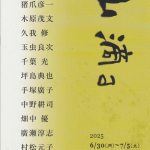 山滴る
猪爪彦一
木原茂文
久我修
玉虫良次
千葉光
坪島典也
手塚廣子
中野耕司
畑中優
廣瀬淳志
村松元子
2025
6/30(月)~7/5(土)